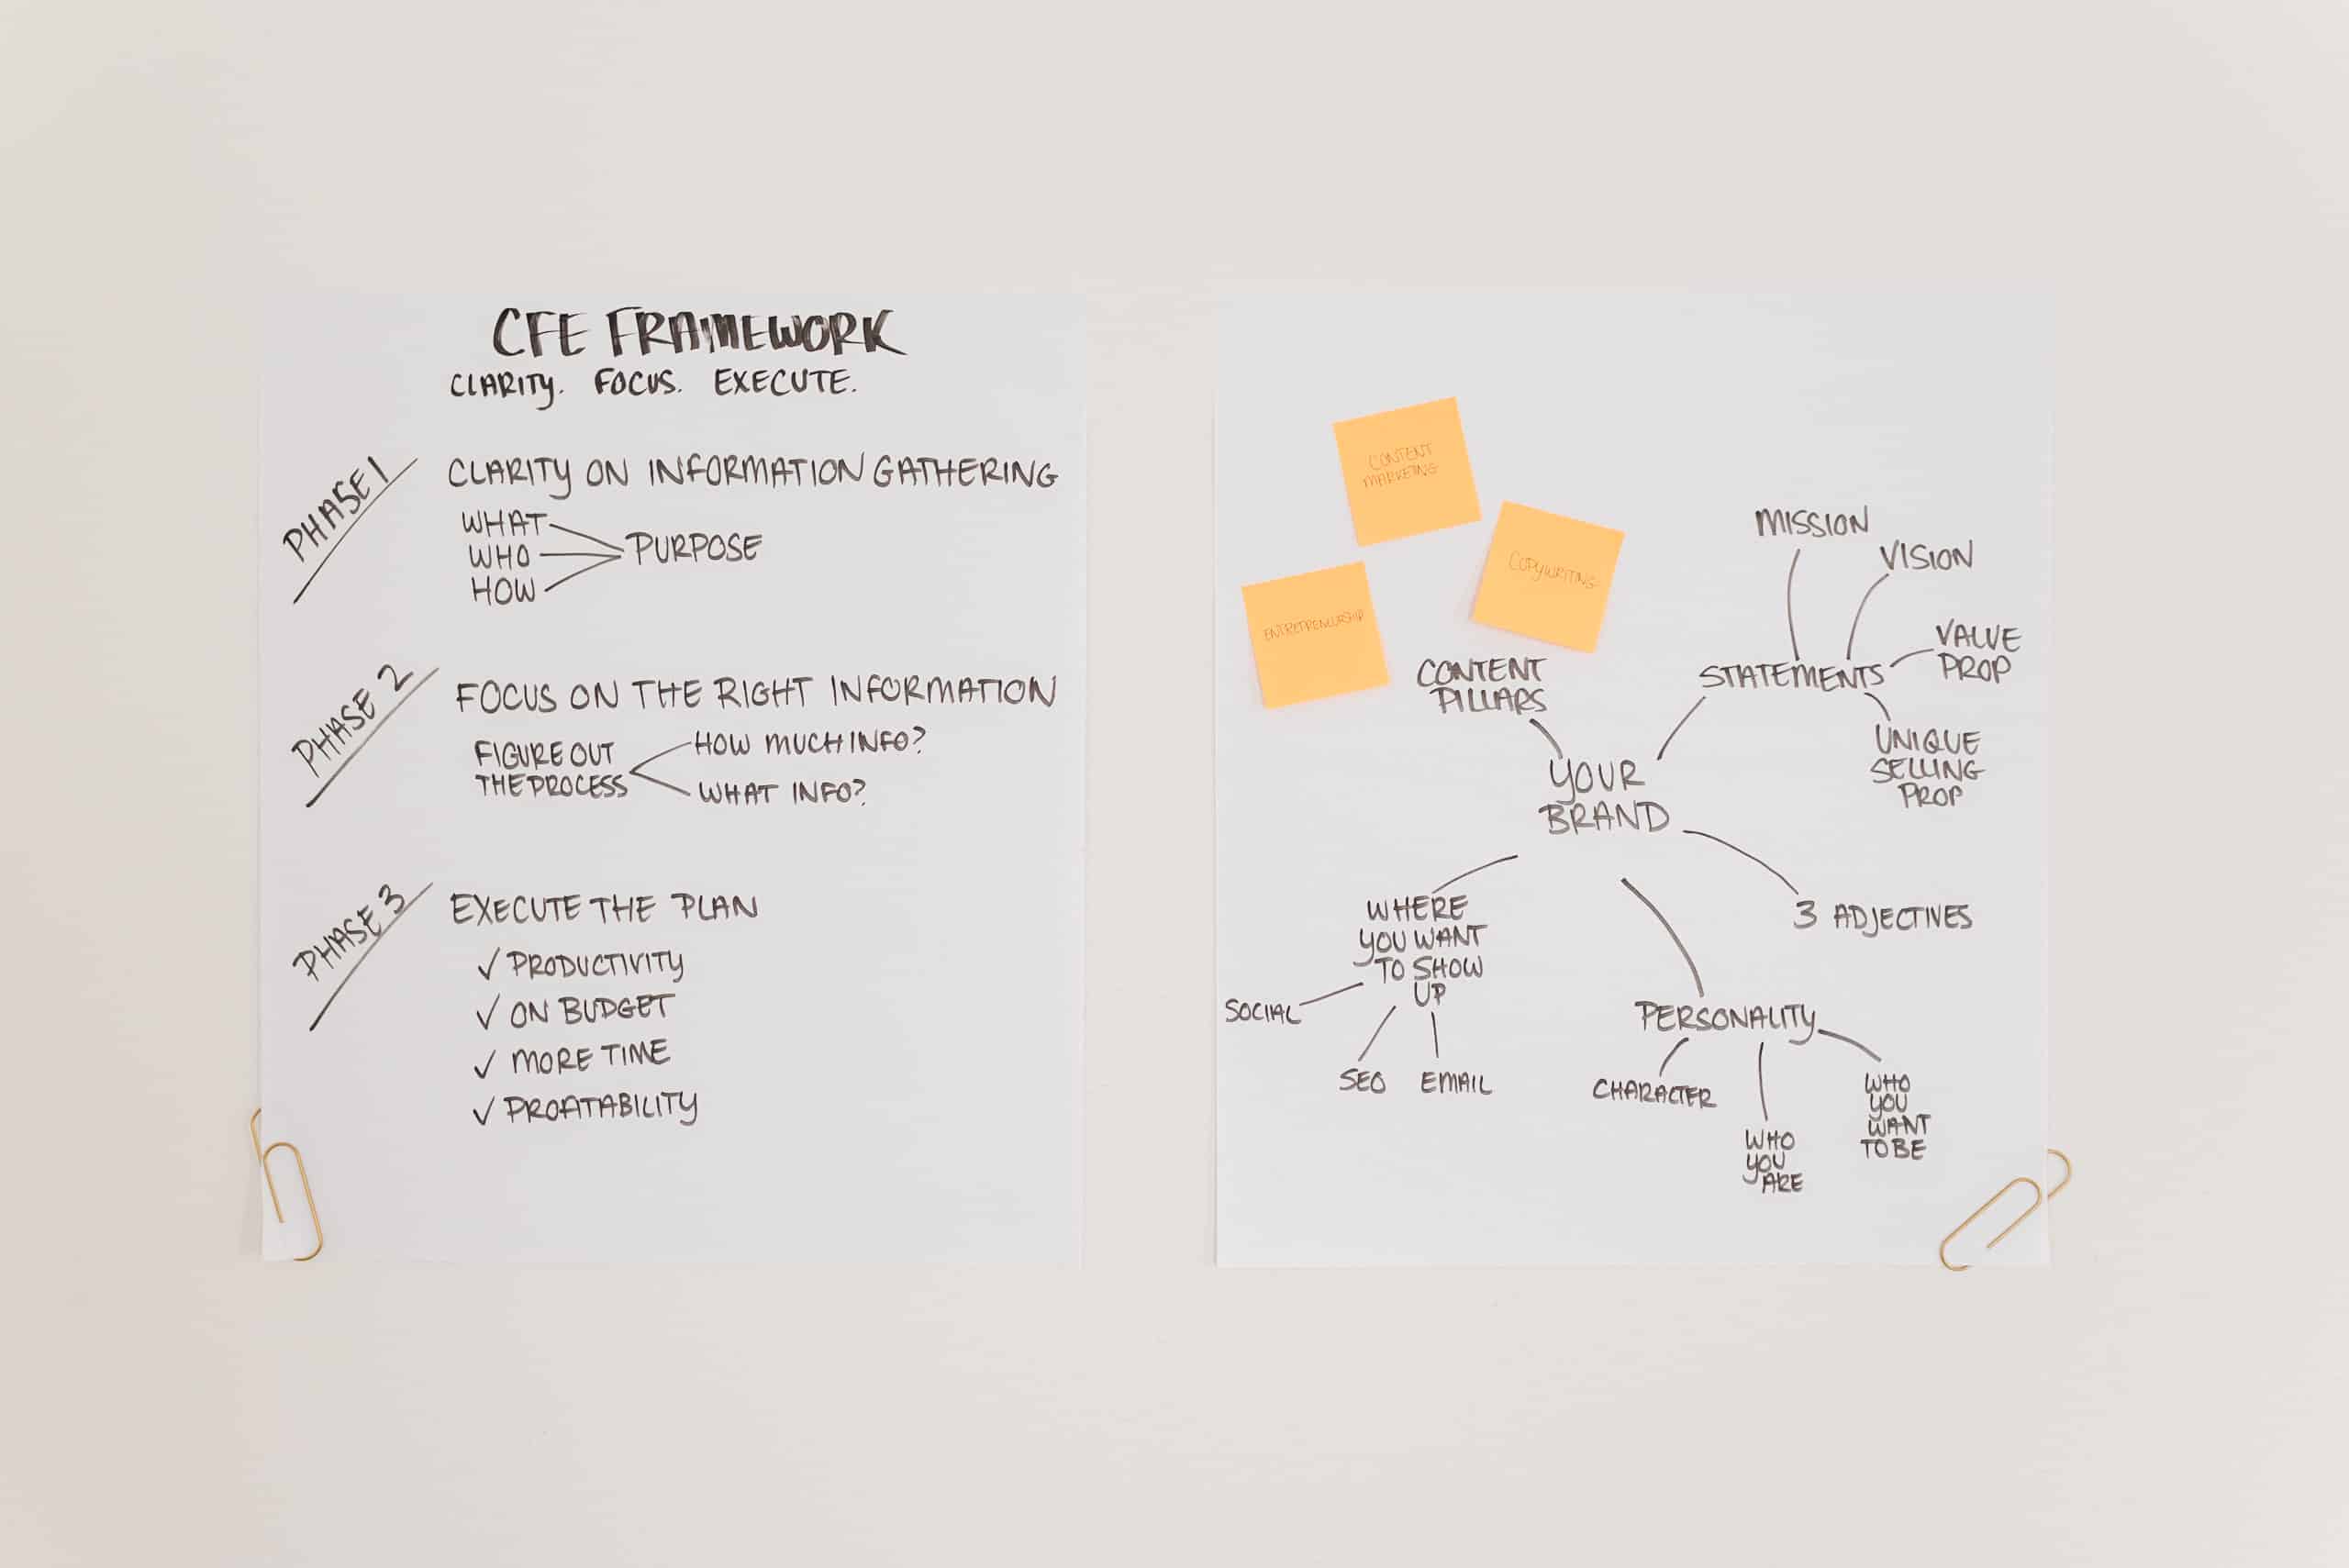 CFE FRAMEWORK
CLARITY. FOCUS. EXECUTE.
PHASE 1
CLARITY ON INFORMATION GATHERING
WHAT
WHO
HOW
PURPOSE
PHASE 2
FOCUS ON THE RIGHT INFORMATION
FIGURE OUT
THE PROCESS
HOW MUCH INFO?
WHAT INFO?
PHASE 3
EXECUTE THE PLAN
✓ PRODUCTIVITY
✓ ON BUDGET
✓ MORE TIME
✓ PROFITABILITY
CONTENT
MARKETING
COPYWRITING
ENTREPRENEURSHIP
CONTENT
PILLARS
MISSION
VISION
VALUE
PROP
STATEMENTS
UNIQUE
SELLING
PROP
YOUR
BRAND
3 ADJECTIVES
WHERE
YOU WANT
TO SHOW
UP
SOCIAL
SEO
EMAIL
PERSONALITY
CHARACTER
WHO
YOU
ARE
WHO
YOU
WANT
TO BE